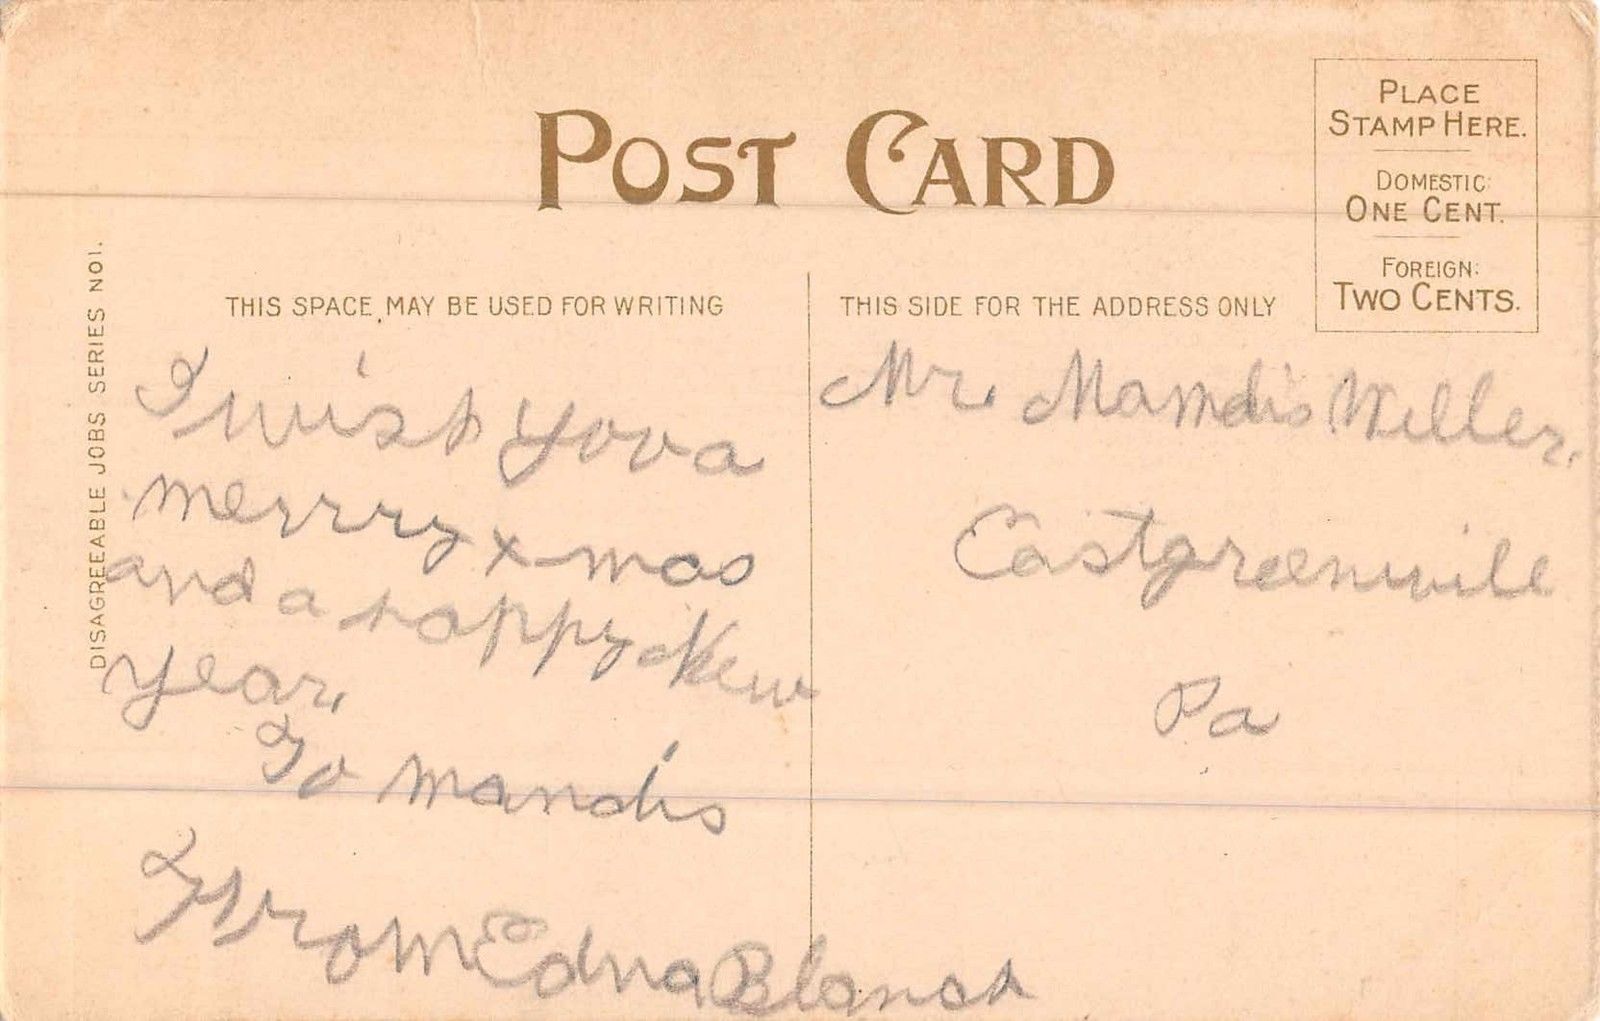 POST CARD
PLACE
STAMP HERE.
DOMESTIC:
ONE CENT.
FOREIGN:
TWO CENTS.
DISAGREEABLE JOBS SERIES NO1.
THIS SPACE MAY BE USED FOR WRITING
I wish you a
merrry xmas
and a happy New
year.
To Mandis
From Edna Blansh
THIS SIDE FOR THE ADDRESS ONLY
Mr. Mamdis Miller.
Eastgreenville
Pa